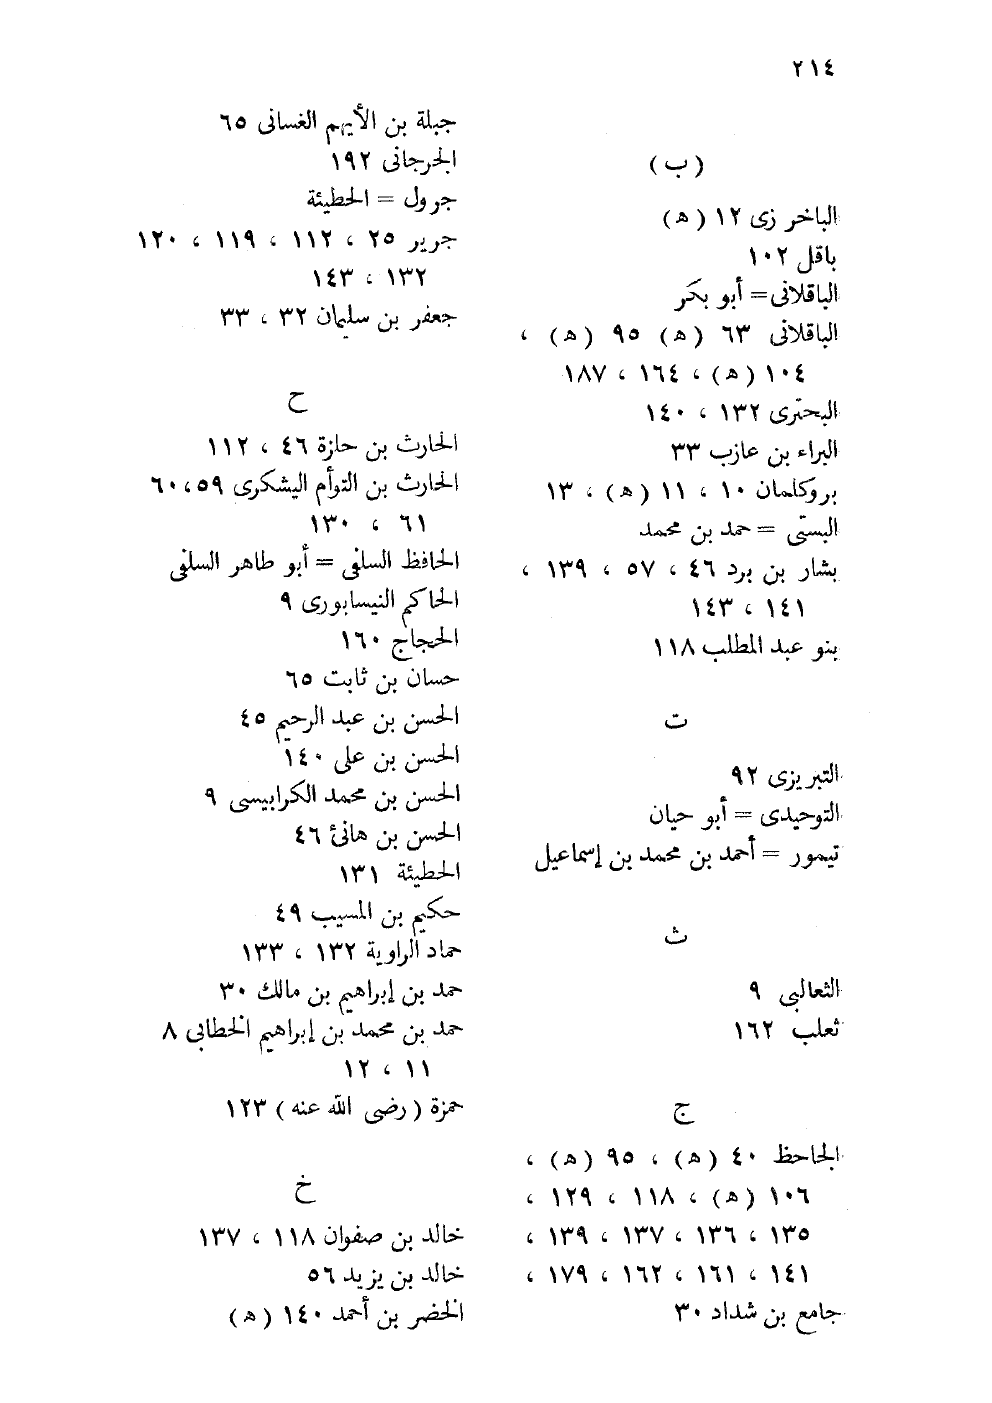 ٢١٤
(ب)
الباخر زى ١٢ (ﻫ)
باقل ١٠٢
الباقلانى= أبو بكر
الباقلانى ٦٣ (ﻫ) ٩٥ (ﻫ) ،
١٠٤ (ﻫ) ، ١٦٤ ، ١٨٧
البحترى ١٣٢ ، ١٤٠
البراء بن عازب ٣٣
بروكلمان ١٠ ، ١١ (ﻫ) ، ١٣
البستى = حمد بن محمد
بشار بن برد ٤٦ ، ٥٧ ، ١٣٩ ،
١٤١ ، ١٤٣
بنو عبد المطلب ١١٨
ت
التبريزى ٩٢
التوحيدى = أبو حيان
تيمور = أحمد بن محمد بن إسماعيل
ث
الثعالبي ٩
ثعلب ١٦٢
ج
الجاحظ ٤٠ (ﻫ) ، ٩٥ (ﻫ) ،
١٠٦ (ﻫ) ، ١١٨ ، ١٢٩ ،
١٣٥ ، ١٣٦ ، ١٣٧ ، ١٣٩ ،
١٤١ ، ١٦١ ، ١٦٢ ، ١٧٩ ،
جامع بن شداد ٣٠
جبلة بن الأيهم الغسانى ٦٥
الجرجانى ١٩٢
جرول = الحطيئة
جرير ٢٥ ، ١١٢ ، ١١٩ ، ١٢٠
١٣٢ ، ١٤٣
جعفر بن سليمان ٣٢ ، ٣٣
ح
الحارث بن حلزة ٤٦ ، ١١٢
الحارث بن التوأم اليشكرى ٥٩،٦٠
٦١ ، ١٣٠
الحافظ السلفى = أبو طاهر السلفى
الحاكم النيسابورى ٩
الحجاج ١٦٠
حسان بن ثابت ٦٥
الحسن بن عبد الرحيم ٤٥
الحسن بن على ١٤٠
الحسن بن محمد الكرابيسى ٩
الحسن بن هانئ ٤٦
الحطيئة ١٣١
حكيم بن المسيب ٤٩
حماد الراوية ١٣٢ ، ١٣٣
حمد بن إبراهيم بن مالك ٣٠
حمد بن محمد بن إبراهيم الخطابى ٨
١١ ، ١٢
حمزة (رضى الله عنه) ١٢٣
خ
خالد بن صفوان ١١٨ ، ١٣٧
خالد بن يزيد ٥٦
الخضر بن أحمد ١٤٠ (ﻫ)